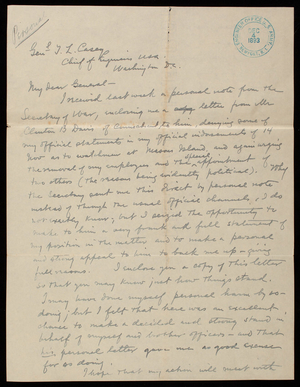 Personal
DEC
4
1893
Gen'l T. L. Casey
Chief of Engineers USA
Washington D.C.
My dear General—
I received last week a personal note from the
Secretary of War, enclosing me a copy letter from Mr
Clinton B. Davis of Connect. to him, denying some of
my official statements in my official indorsements of 14
Nov as to watchmen at Mason's Island, and again urging
the removal of my employees and the appointment of
two others (the reason being evidently political). Why
the Secretary sent me this direct by personal note
instead of through the usual official channels, I do
not exactly know; but I seized the opportunity to
make to him a very frank and full statement of
my position in the matter and to make a personal
and strong appeal to him to back me up - giving
full reasons. I enclose you a copy of this letter
so that you may know just how things stand.
I may have done myself personal harm by so-
doing; but I felt that here was an excellent
chance to make a decided and strong stand in
behalf of myself and brother officers - and that
his personal letter gave me as good excuse
for so doing.
I hope that my action will meet with